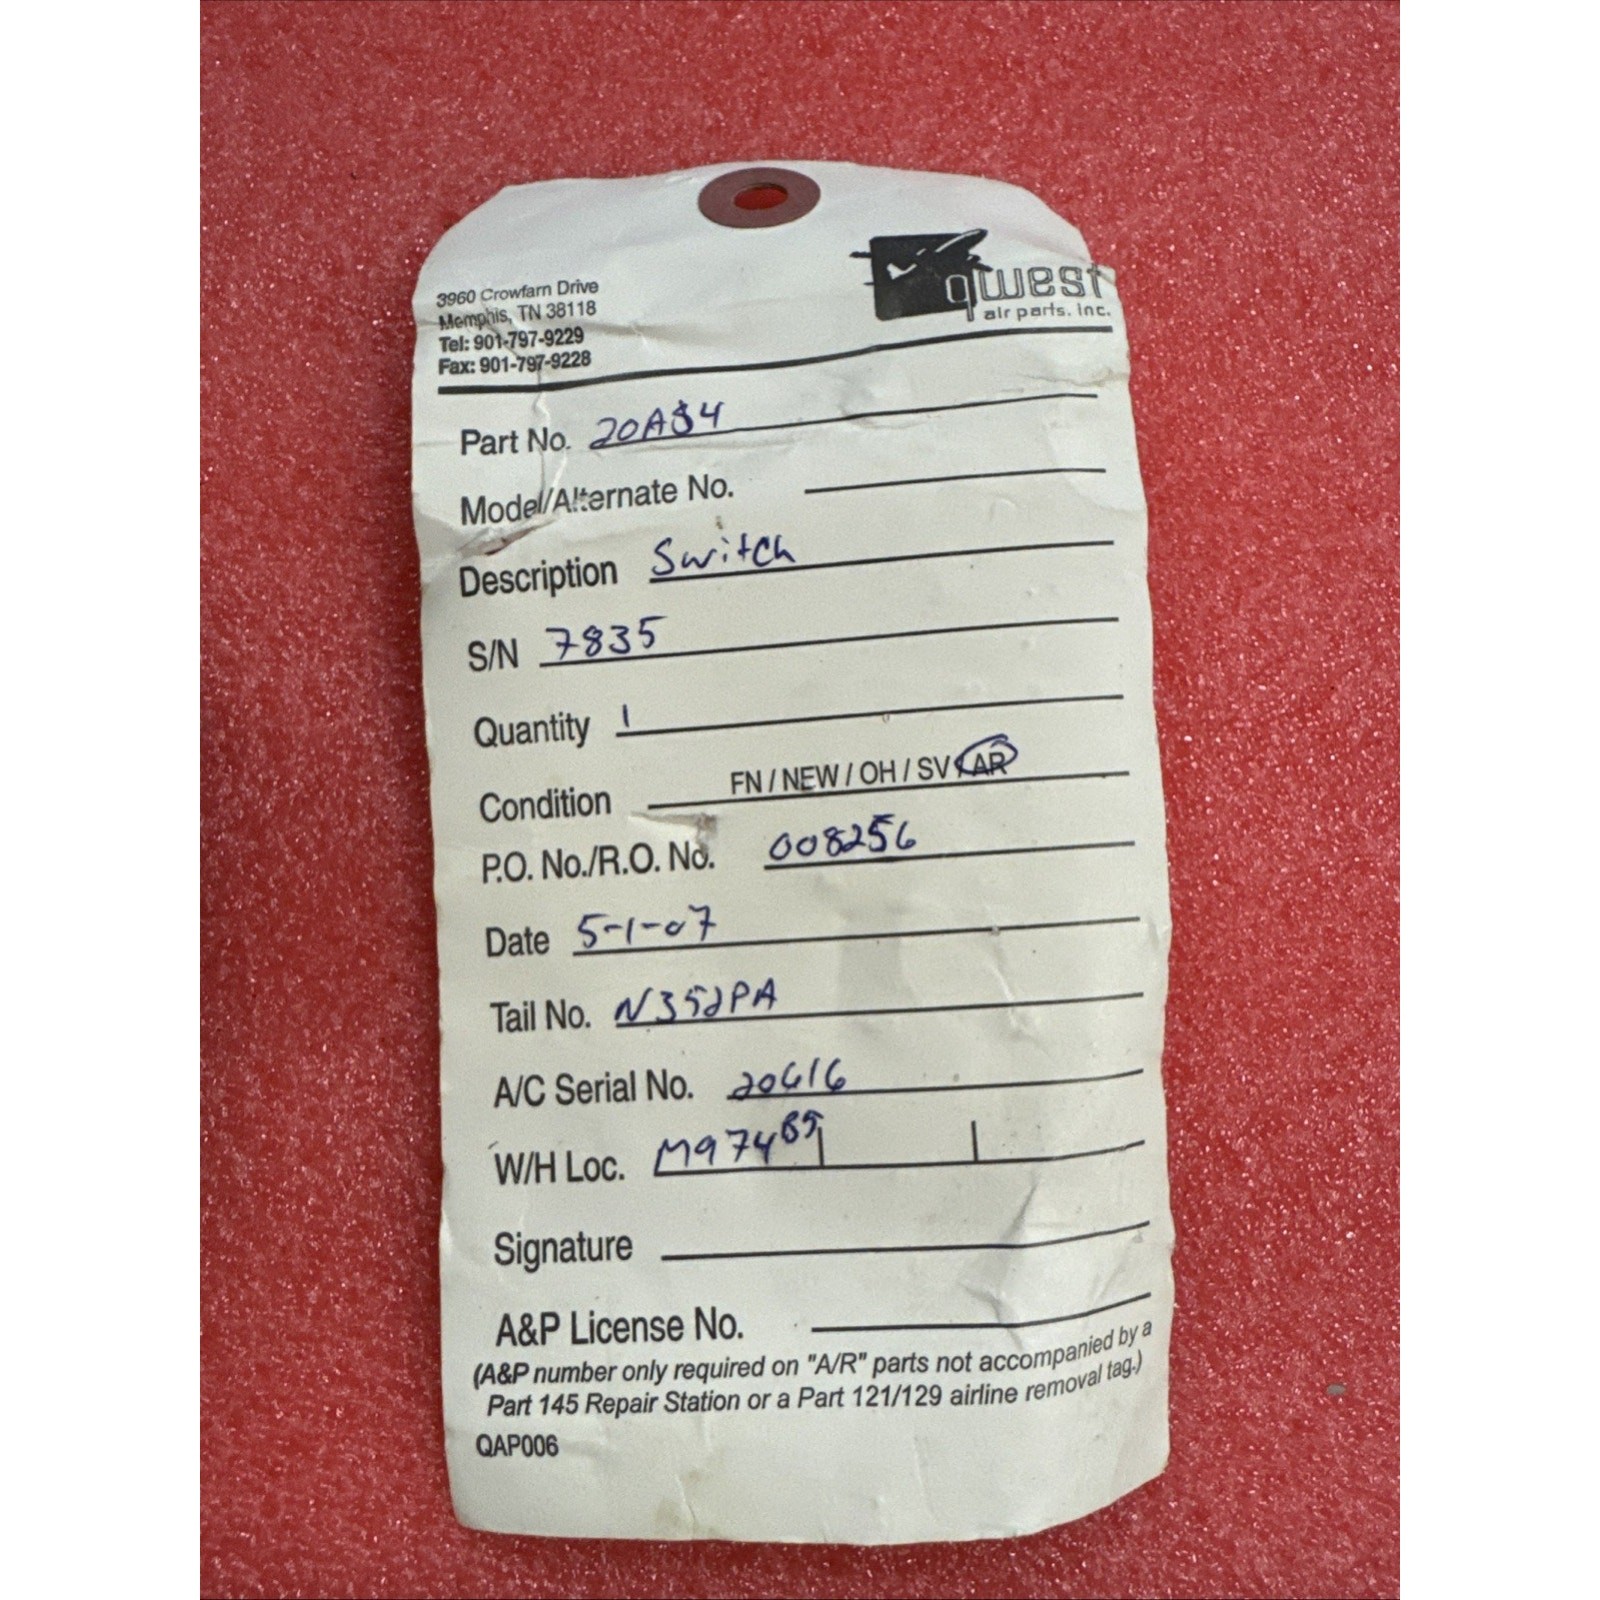 3960 Crowfarn Drive
Memphis, TN 38118
Tel: 901-797-9229
Fax: 901-797-9228
qwest
air parts, inc.
Part No. 20AS4
Model/Alternate No.
Description Switch
S/N 7835
Quantity 1
Condition FN / NEW / OH / SV / AR
P.O. No./R.O. No. 008256
Date 5-1-07
Tail No. N352PA
A/C Serial No. 20616
W/H Loc. M974B5
Signature
A&P License No.
(A&P number only required on "A/R" parts not accompanied by a
Part 145 Repair Station or a Part 121/129 airline removal tag.)
QAP006